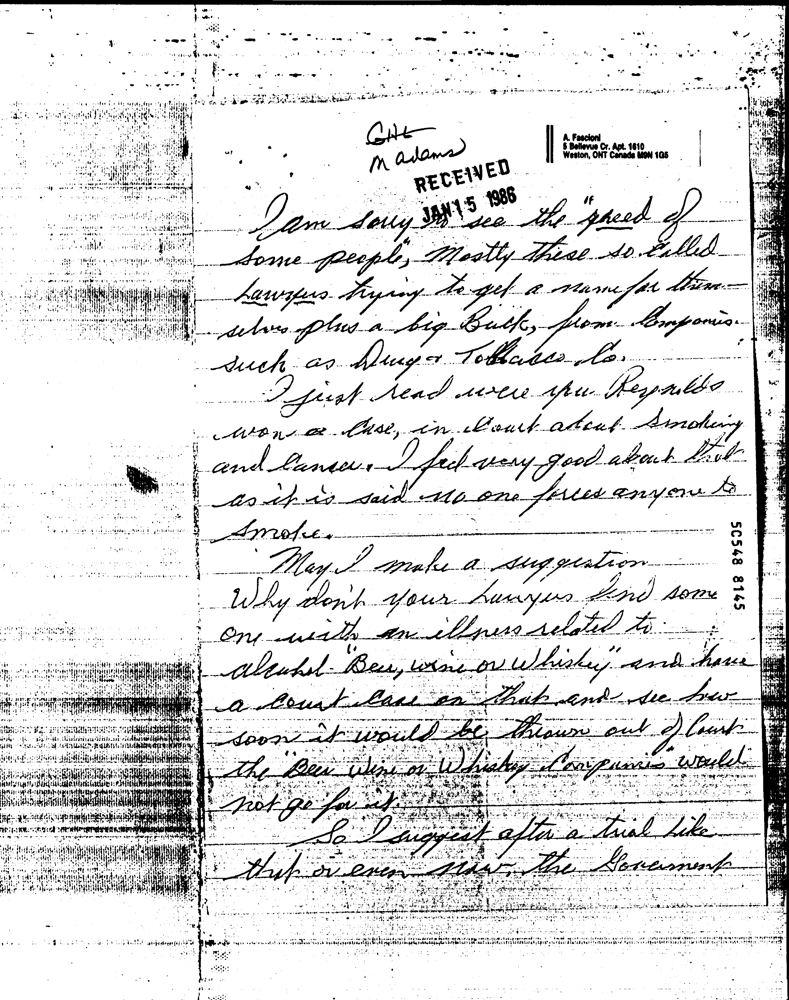 GHL
M adams
A. Fascioni
5 Bellevue Cr. Apt. 1610
Weston, ONT Canada M9N 1G5
RECEIVED
JAN 15 1986
I am sorry to see the "greed of
some people", Mostly these so called
Lawyers trying to get a name for them-
selves plus a big Buck, from Companies
such as Drug & Tobbacco Co.
I just read were you Reynolds
won a Case, in Court about Smoking
and Cancer. I feel very good about that
as it is said no one forces anyone to
smoke.
May I make a suggestion
Why don't your Lawyers find some
one with an illness related to
alcohol "Beer, wine or Whiskey" and have
a court case on that and see how
soon it would be thrown out of Court
the "Beer Wine or Whiskey Companies" would
not go for it.
So I suggest after a trial like
that or even now, the Goverment
50548 8145